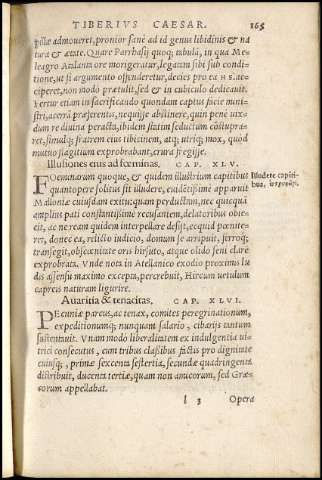 TIBERIVS CAESAR. 165
pillæ admoueret, pronior sane ad id genus libidinis & na
tura & ætate. Quare Parrhasij quoq; tabulā, in qua Me
leagro Atalanta ore morigeratur, legatam sibi sub condi-
tione, ut si argumento offenderetur, decies pro ea HS. ac-
ciperet, non modo prætulit, sed & in cubiculo dedicauit.
Fertur etiam in sacrificando quondam captus facie mini-
stri, acerrā præferentis, nequisse abstinere, quin pene uix-
dum re diuina peracta, ibidem statim seductum cōstupra-
ret, simulq; fratrem eius tibicinem, atq; utriq; mox, quòd
mutuo flagitium exprobrabant, crura fregisse.
Illusiones eius ad fœminas. CAP. XLV.
FOeminarum quoque, & quidem illustrium capitibus
quantopere solitus sit illudere, euidētissime apparuit
Malloniæ cuiusdam exitu: quam perductam, nec quicquā
amplius pati constantissimè recusantem, delatoribus obie-
cit, ac ne ream quidem interpellare desijt, ecquid pœnite-
ret, donec ea, relicto iudicio, domum se arripuit, ferroq;
transegit, obscœnitate oris hirsuto, atque olido seni clare
exprobrata. Vnde nota in Atellanico exodio proximis lu
dis assensu maximo excepta, percrebuit, Hircum uetulum
capreis naturam ligurire.
Illudere capiti-
bus,
Auaritia & tenacitas. CAP. XLVI.
PEcuniæ parcus, ac tenax, comites peregrinationum,
expeditionumq; nunquam salario, cibarijs tantum
sustentauit. Vnam modo liberalitatem ex indulgentia ui-
trici consecutus, cum tribus classibus factis pro dignitate
cuiusq;, primæ sexcenta sestertia, secundæ quadringenta
distribuit, ducenta tertiæ, quam non amicorum, sed Græ-
corum appellabat.
l 3 Opera